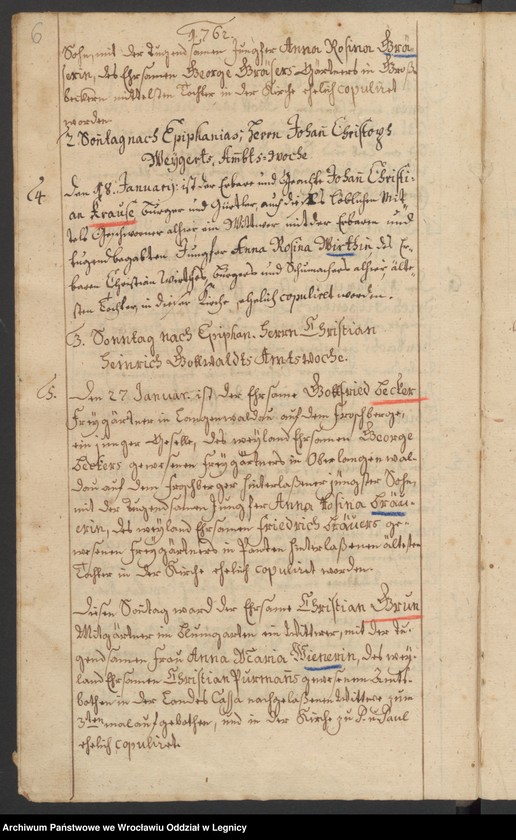 6
1762.
Sohn, mit der Tugendsamen Jungfer Anna Rosina Grä-
serin, des Ehrsamen George Gräsers Gärtners in Groß
beckern mittelsten Tochter in der Kirche ehelich copuliret
worden.
2 Soñtag nach Epiphanias, Herrn Johañ Christoph
Weÿgerts, Ambts-Woche
4. Den 18. Januarij: ist der Erbare und Johañ Christi-
an Krause, Bürger und Gürtler, auch des Löblichen Mit-
tels Geschworner alhier ein Wittwer mit der Erbaren und
tugendbegabten Jungfer Anna Rosina Wirthin des E.
baren Christian Wirthes, Bürgers und Schumachers alhier älte-
sten Tochter, in dieser Kirche ehelich copuliret worden.
3. Sonntag nach Epiphan. Herrn Christian
Heinrich Gottwaldts Amtswoche.
5. Den 27. Januar. ist der Ehrsame Gottfried Becker
Freÿgärtner in Langenwaldau auf dem Froschberge,
ein junger Geselle, des weyland Ehrsamen George
Beckers gewesenen Freÿgärtners in Oberlangenwal-
dau auf dem Froschberge hinterlaßener jüngster Sohn,
mit der tugendsamen Jungfer Anna Rosina Bräu-
erin, des weyland Ehrsamen Friedrich Bräuers ge-
wesenen Freÿgärtners in Panten hinterlaßenen ältesten
Tochter in der Kirche ehelich copuliret worden.
Diesen Soñtag ward der Ehrsame Christian Brun
Mitgärtner in Baumgarten ein Wittwer, mit der tu-
gendsamen Frau Anna Maria Wienerin, des wey-
land Ehrsamen Christian Pürmañs gewesenen Amts-
bothen in der Landes Cassa nachgelaßenen Wittwe zum
3ten mal aufgebothen, und in der Kirche zu P. u. Paul
ehelich copuliret.
Archiwum Państwowe we Wrocławiu Oddział w Legnicy